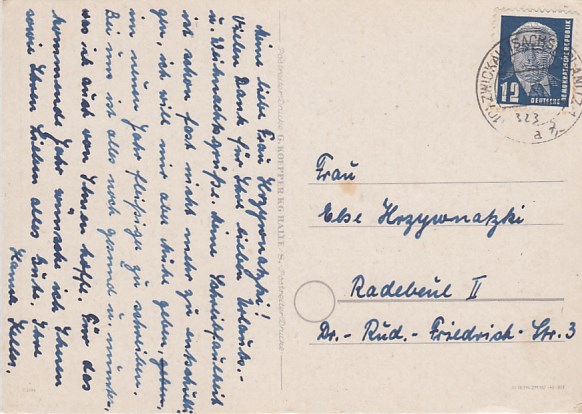 Meine liebe Frau Krzywnatzki!
Vielen Dank für Ihre lieben Urlaub-
u. Weihnachtsgrüße. Meine Schreibfaulheit
ist schon fast nicht mehr zu entschuldi-
gen, ich will mir aber Mühe geben,
im neuen Jahr fleißiger zu schreiben.
Bei uns ist alles noch gesund u. munter,
was ich auch von Ihnen hoffe. Für das
kommende Jahr wünsche ich Ihnen
sowie Ihren Lieben alles Gute. Ihre
Hanna
G. KOEPPER KG HALLE/S.
12
DEUTSCHE
DEMOKRATISCHE REPUBLIK
ZWICKAU (SACHS)
Frau
Else Krzywnatzki
Radebeul II
Dr.- Rud.- Friedrich- Str. 3